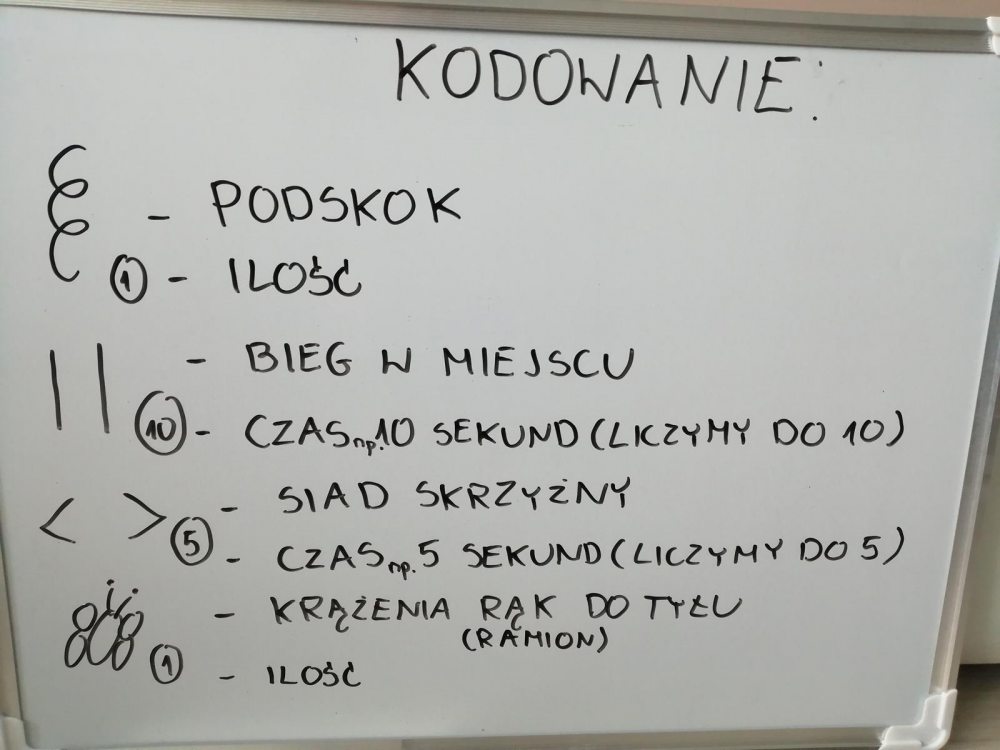 KODOWANIE:
- PODSKOK
1 - ILOŚĆ
- BIEG W MIEJSCU
10 - CZAS np. 10 SEKUND (LICZYMY DO 10)
< > - SIAD SKRZYŻNY
5 - CZAS np. 5 SEKUND (LICZYMY DO 5)
- KRĄŻENIA RĄK DO TYŁU
(RAMION)
1 - ILOŚĆ